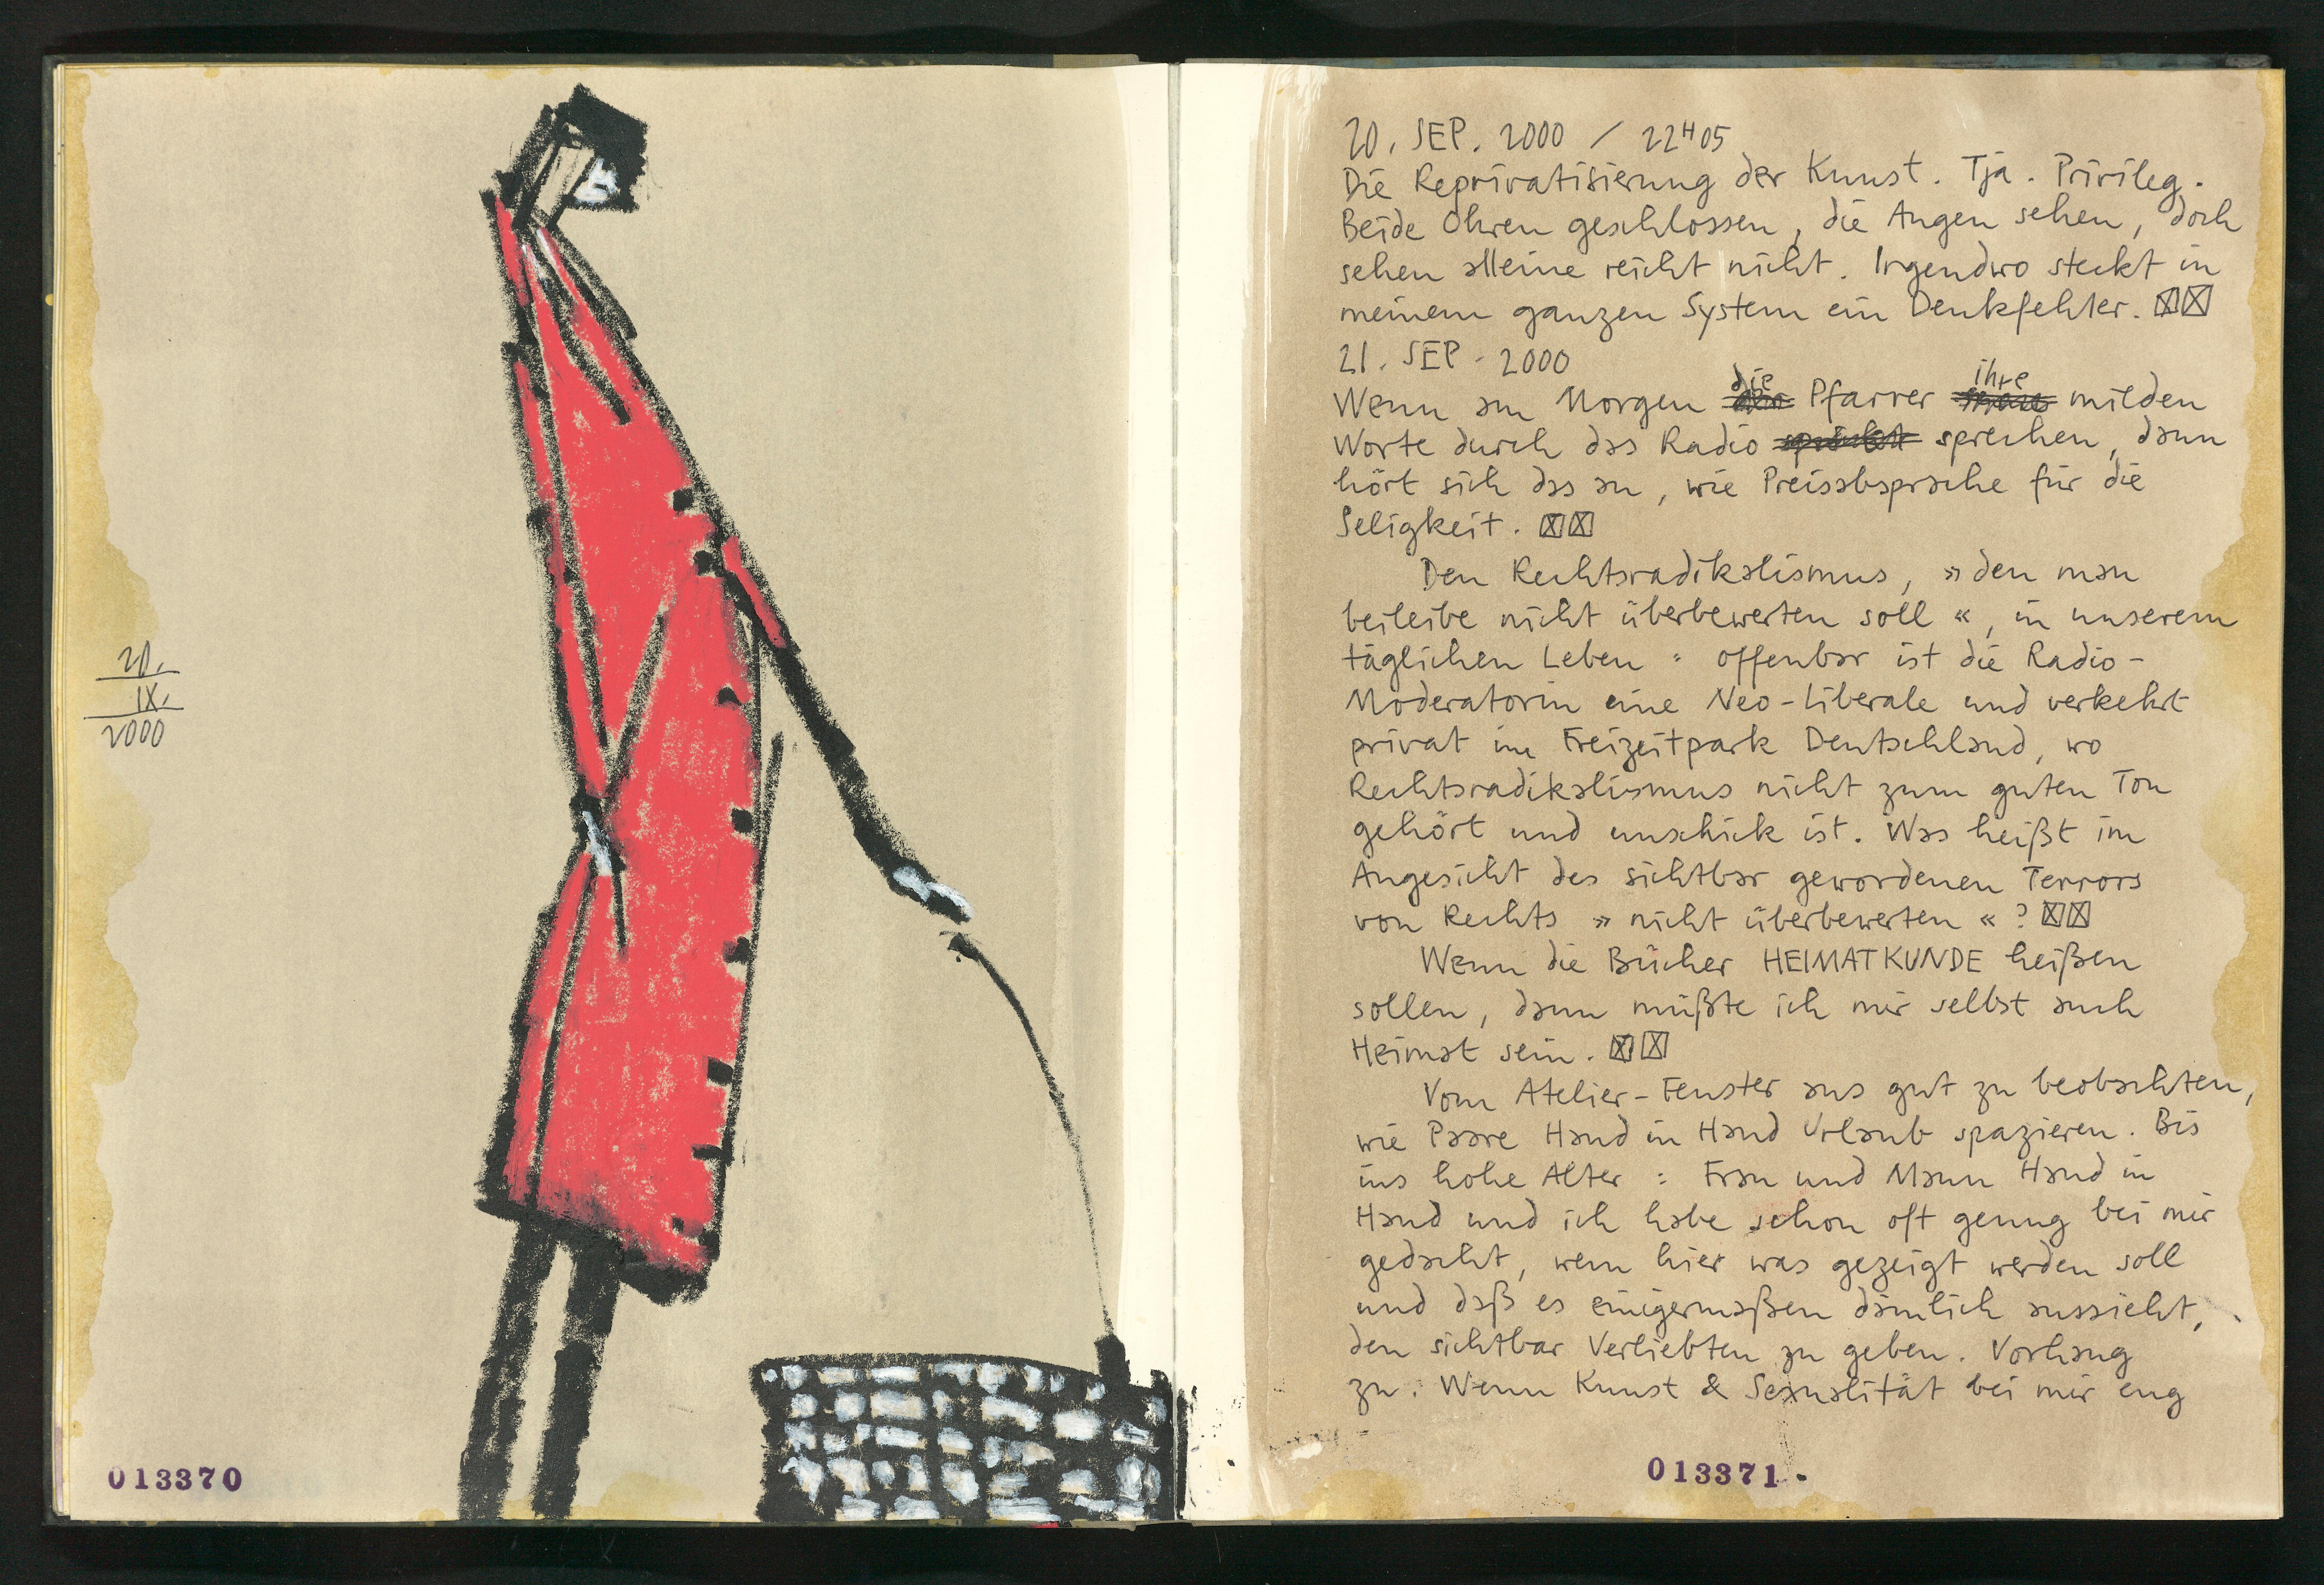 20.
IX.
2000
013370
20. SEP. 2000 / 22H05
Die Reprivatisierung der Kunst. Tja. Privileg.
Beide Ohren geschlossen, die Augen sehen, doch
sehen alleine reicht nicht. Irgendwo steckt in
meinem ganzen System ein Denkfehler. ☒☒
21. SEP. 2000
Wenn am Morgen die Pfarrer ihre milden
Worte durch das Radio sprechen, dann
hört sich das an, wie Preisabsprache für die
Seligkeit. ☒☒
Den Rechtsradikalismus, »den man
beileibe nicht überbewerten soll«, in unserem
täglichen Leben: offenbar ist die Radio-
Moderatorin eine Neo-Liberale und verkehrt
privat im Freizeitpark Deutschland, wo
Rechtsradikalismus nicht zum guten Ton
gehört und unschick ist. Was heißt im
Angesicht des sichtbar gewordenen Terrors
von Rechts »nicht überbewerten«? ☒☒
Wenn die Bücher HEIMATKUNDE heißen
sollen, dann müßte ich mir selbst auch
Heimat sein. ☒☒
Vom Atelier-Fenster aus gut zu beobachten,
wie Paare Hand in Hand Urlaub spazieren. Bis
ins hohe Alter: Frau und Mann Hand in
Hand und ich habe schon oft genug bei mir
gedacht, wem hier was gezeigt werden soll
und daß es einigermaßen dämlich aussieht,
den sichtbar Verliebten zu geben. Vorhang
zu. Wenn Kunst & Sexualität bei mir eng
013371